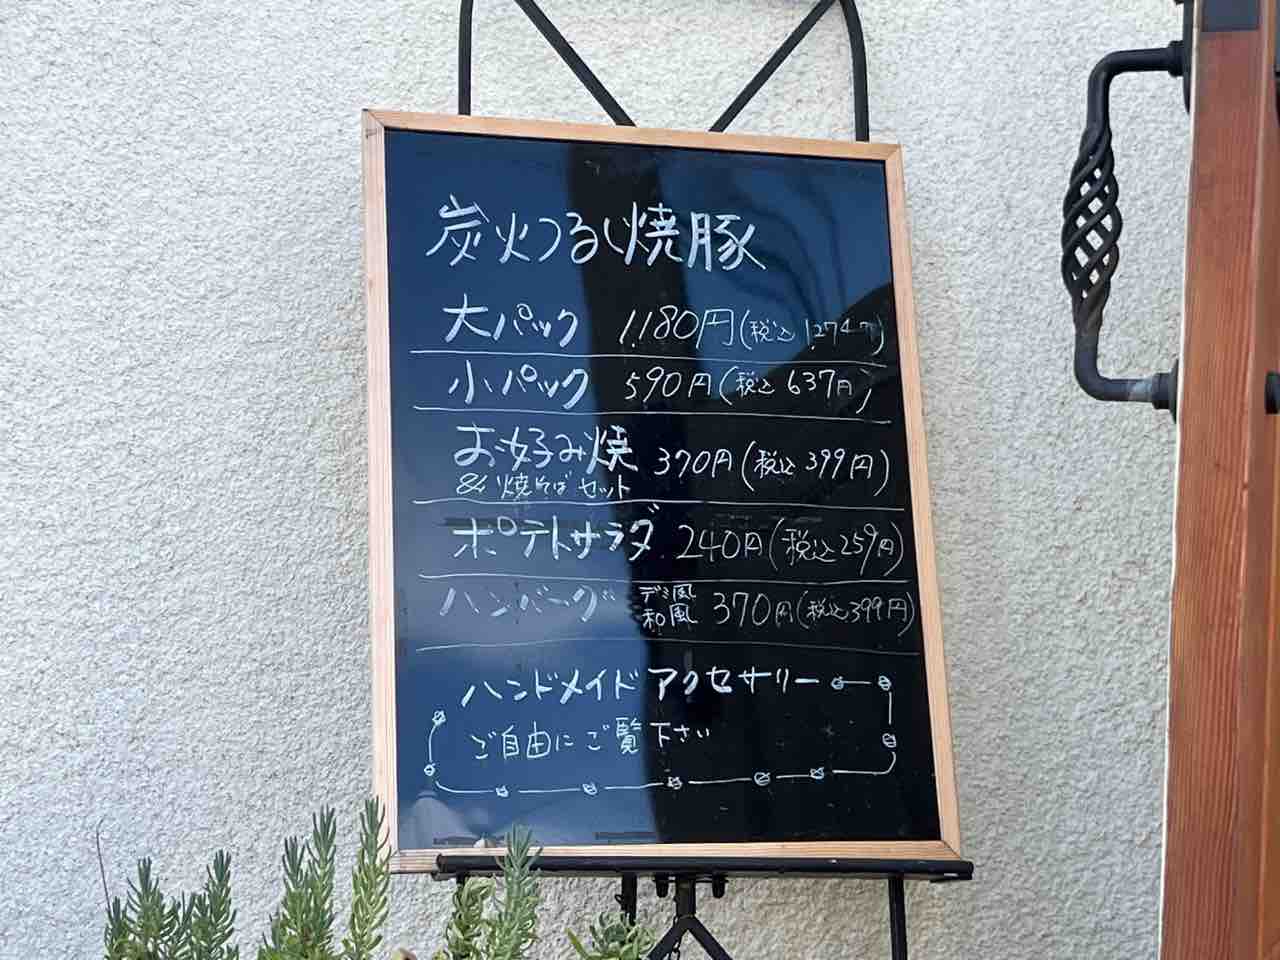 炭火つるし焼豚
大パック 1,180円(税込1,274円)
小パック 590円(税込637円)
お好み焼 370円(税込399円)
&焼そばセット
ポテトサラダ 240円(税込259円)
ハンバーグ デミ風 和風 370円(税込399円)
ハンドメイドアクセサリー
ご自由にご覧下さい